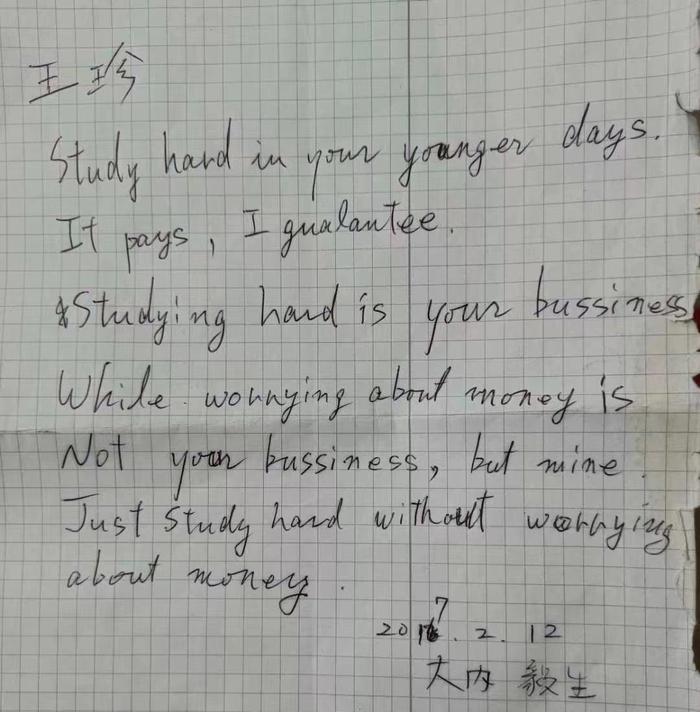 王珍
Study hard in your younger days.
It pays, I gualantee.
Studying hard is your bussiness
While worrying about money is
Not your bussiness, but mine.
Just study hard without worrying
about money.
2017.2.12
大内 毅生